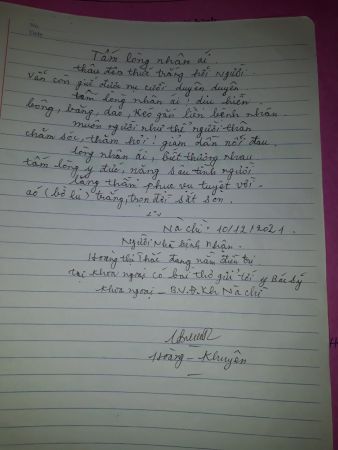 Tấm lòng nhân ái
thâu đêm thức trắng bởi người
Vẫn còn giữ được nụ cười duyên duyên
tấm lòng nhân ái, dịu hiền
bông, băng, dao, kéo gắn liền bệnh nhân
muôn người như thể người thân
chăm sóc, thăm hỏi, giảm dần nỗi đau
lòng nhân ái, biết thương nhau
tấm lòng y đức, nặng sâu tình người
lặng thầm phục vụ tuyệt vời
áo (bờ lu) trắng, trọn đời sắt son.
Nà chì. 10/12/2021.
Người Nhà bệnh Nhân.
Hoàng thị Phái đang nằm điều trị
tại khoa ngoại có bài thơ gửi tới y Bác sỹ
khoa ngoại – B.V.Đ.Kh Nà chì
Hoàng – Khuyên